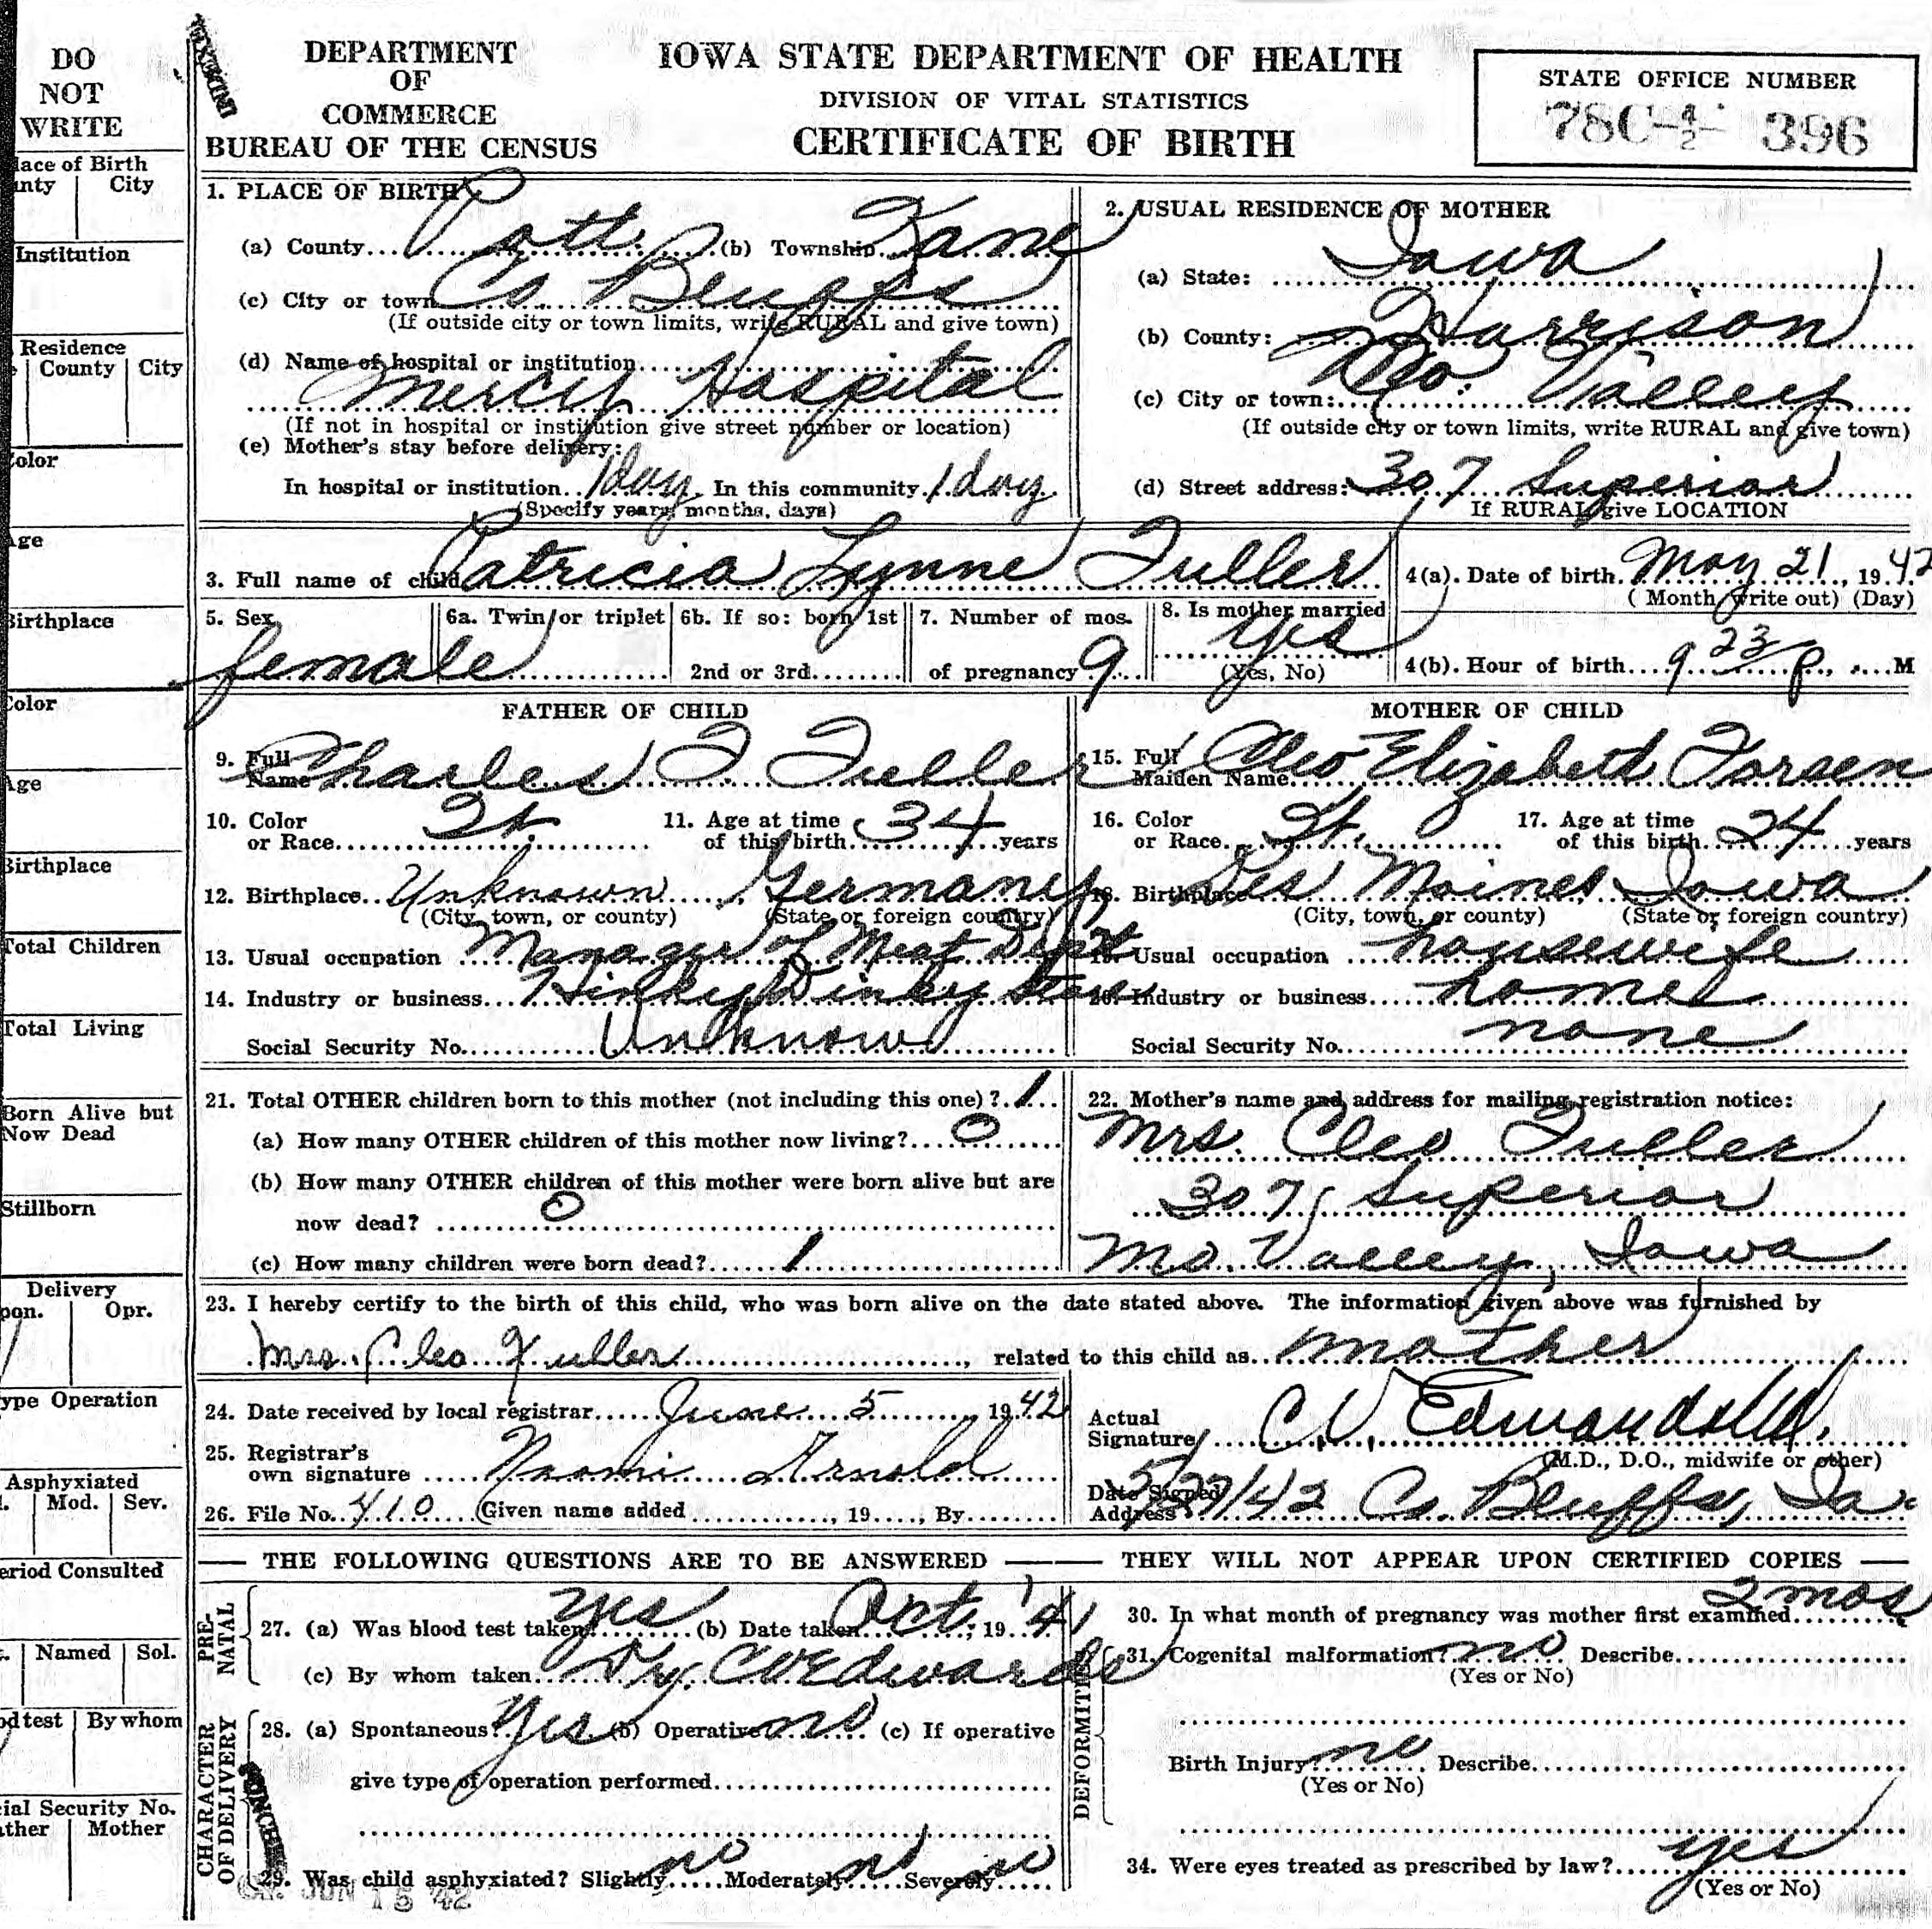 DO
NOT
WRITE
lace of Birth
nty City
Institution
Residence
County City
Color
Age
Birthplace
Color
Age
Birthplace
Total Children
Total Living
Born Alive but
Now Dead
Stillborn
Delivery
pon. Opr.
ype Operation
Asphyxiated
Mod. Sev.
eriod Consulted
Named Sol.
od test By whom
ial Security No.
ather Mother
DEPARTMENT
OF
COMMERCE
BUREAU OF THE CENSUS
IOWA STATE DEPARTMENT OF HEALTH
DIVISION OF VITAL STATISTICS
CERTIFICATE OF BIRTH
STATE OFFICE NUMBER
78C-4/2- 396
1. PLACE OF BIRTH
(a) County Pott. (b) Township Kane
(c) City or town Co Bluffs
(If outside city or town limits, write RURAL and give town)
(d) Name of hospital or institution
Mercy Hospital
(If not in hospital or institution give street number or location)
(e) Mother's stay before delivery:
In hospital or institution 1 day In this community 1 day
(Specify years, months, days)
2. USUAL RESIDENCE OF MOTHER
(a) State: Iowa
(b) County: Harrison
(c) City or town: Mo. Valley
(If outside city or town limits, write RURAL and give town)
(d) Street address: 307 Superior
If RURAL give LOCATION
3. Full name of child Patricia Lynne Fuller
4(a). Date of birth May 21, 1942
(Month write out) (Day)
5. Sex female
6a. Twin or triplet
6b. If so: born 1st
2nd or 3rd
7. Number of mos.
of pregnancy 9
8. Is mother married
yes
(Yes, No)
4(b). Hour of birth 9 23 P. M
FATHER OF CHILD
9. Full Name Charles F. Fuller
10. Color or Race 11. Age at time of this birth 34 years
12. Birthplace Unknown Germany
(City, town, or county) (State or foreign country)
13. Usual occupation Manager of Meat Dept
14. Industry or business Hinky Dinky Store
Social Security No. Unknow
MOTHER OF CHILD
15. Full Maiden Name Cleo Elizabeth Forsen
16. Color or Race 17. Age at time of this birth 24 years
18. Birthplace Des Moines, Iowa
(City, town, or county) (State or foreign country)
19. Usual occupation housewife
20. Industry or business home
Social Security No. none
21. Total OTHER children born to this mother (not including this one)? 1
(a) How many OTHER children of this mother now living? 0
(b) How many OTHER children of this mother were born alive but are
now dead? 0
(c) How many children were born dead? 1
22. Mother's name and address for mailing registration notice:
Mrs. Cleo Fuller
307 Superior
Mo. Valley, Iowa
23. I hereby certify to the birth of this child, who was born alive on the date stated above. The information given above was furnished by
Mrs. Cleo Fuller, related to this child as mother
24. Date received by local registrar June 5 1942
25. Registrar's own signature Naomi Arnold
26. File No. 410 Given name added , 19 , By
Actual Signature C. V. Edwards M.D.
(M.D., D.O., midwife or other)
Date Signed 5/27/42 Co. Bluffs, Ia.
Address
THE FOLLOWING QUESTIONS ARE TO BE ANSWERED THEY WILL NOT APPEAR UPON CERTIFIED COPIES
PRE-NATAL
27. (a) Was blood test taken? yes (b) Date taken Oct, 19 '41
(c) By whom taken Dr. CV Edwards
CHARACTER OF DELIVERY
28. (a) Spontaneous? yes (b) Operative no (c) If operative
give type of operation performed
PUNCHED
29. Was child asphyxiated? Slightly no Moderately no Severely no
JUN 15 '42
30. In what month of pregnancy was mother first examined 2 mos
DEFORMITIES
31. Cogenital malformation? no Describe
(Yes or No)
Birth Injury? no Describe
(Yes or No)
34. Were eyes treated as prescribed by law? yes
(Yes or No)